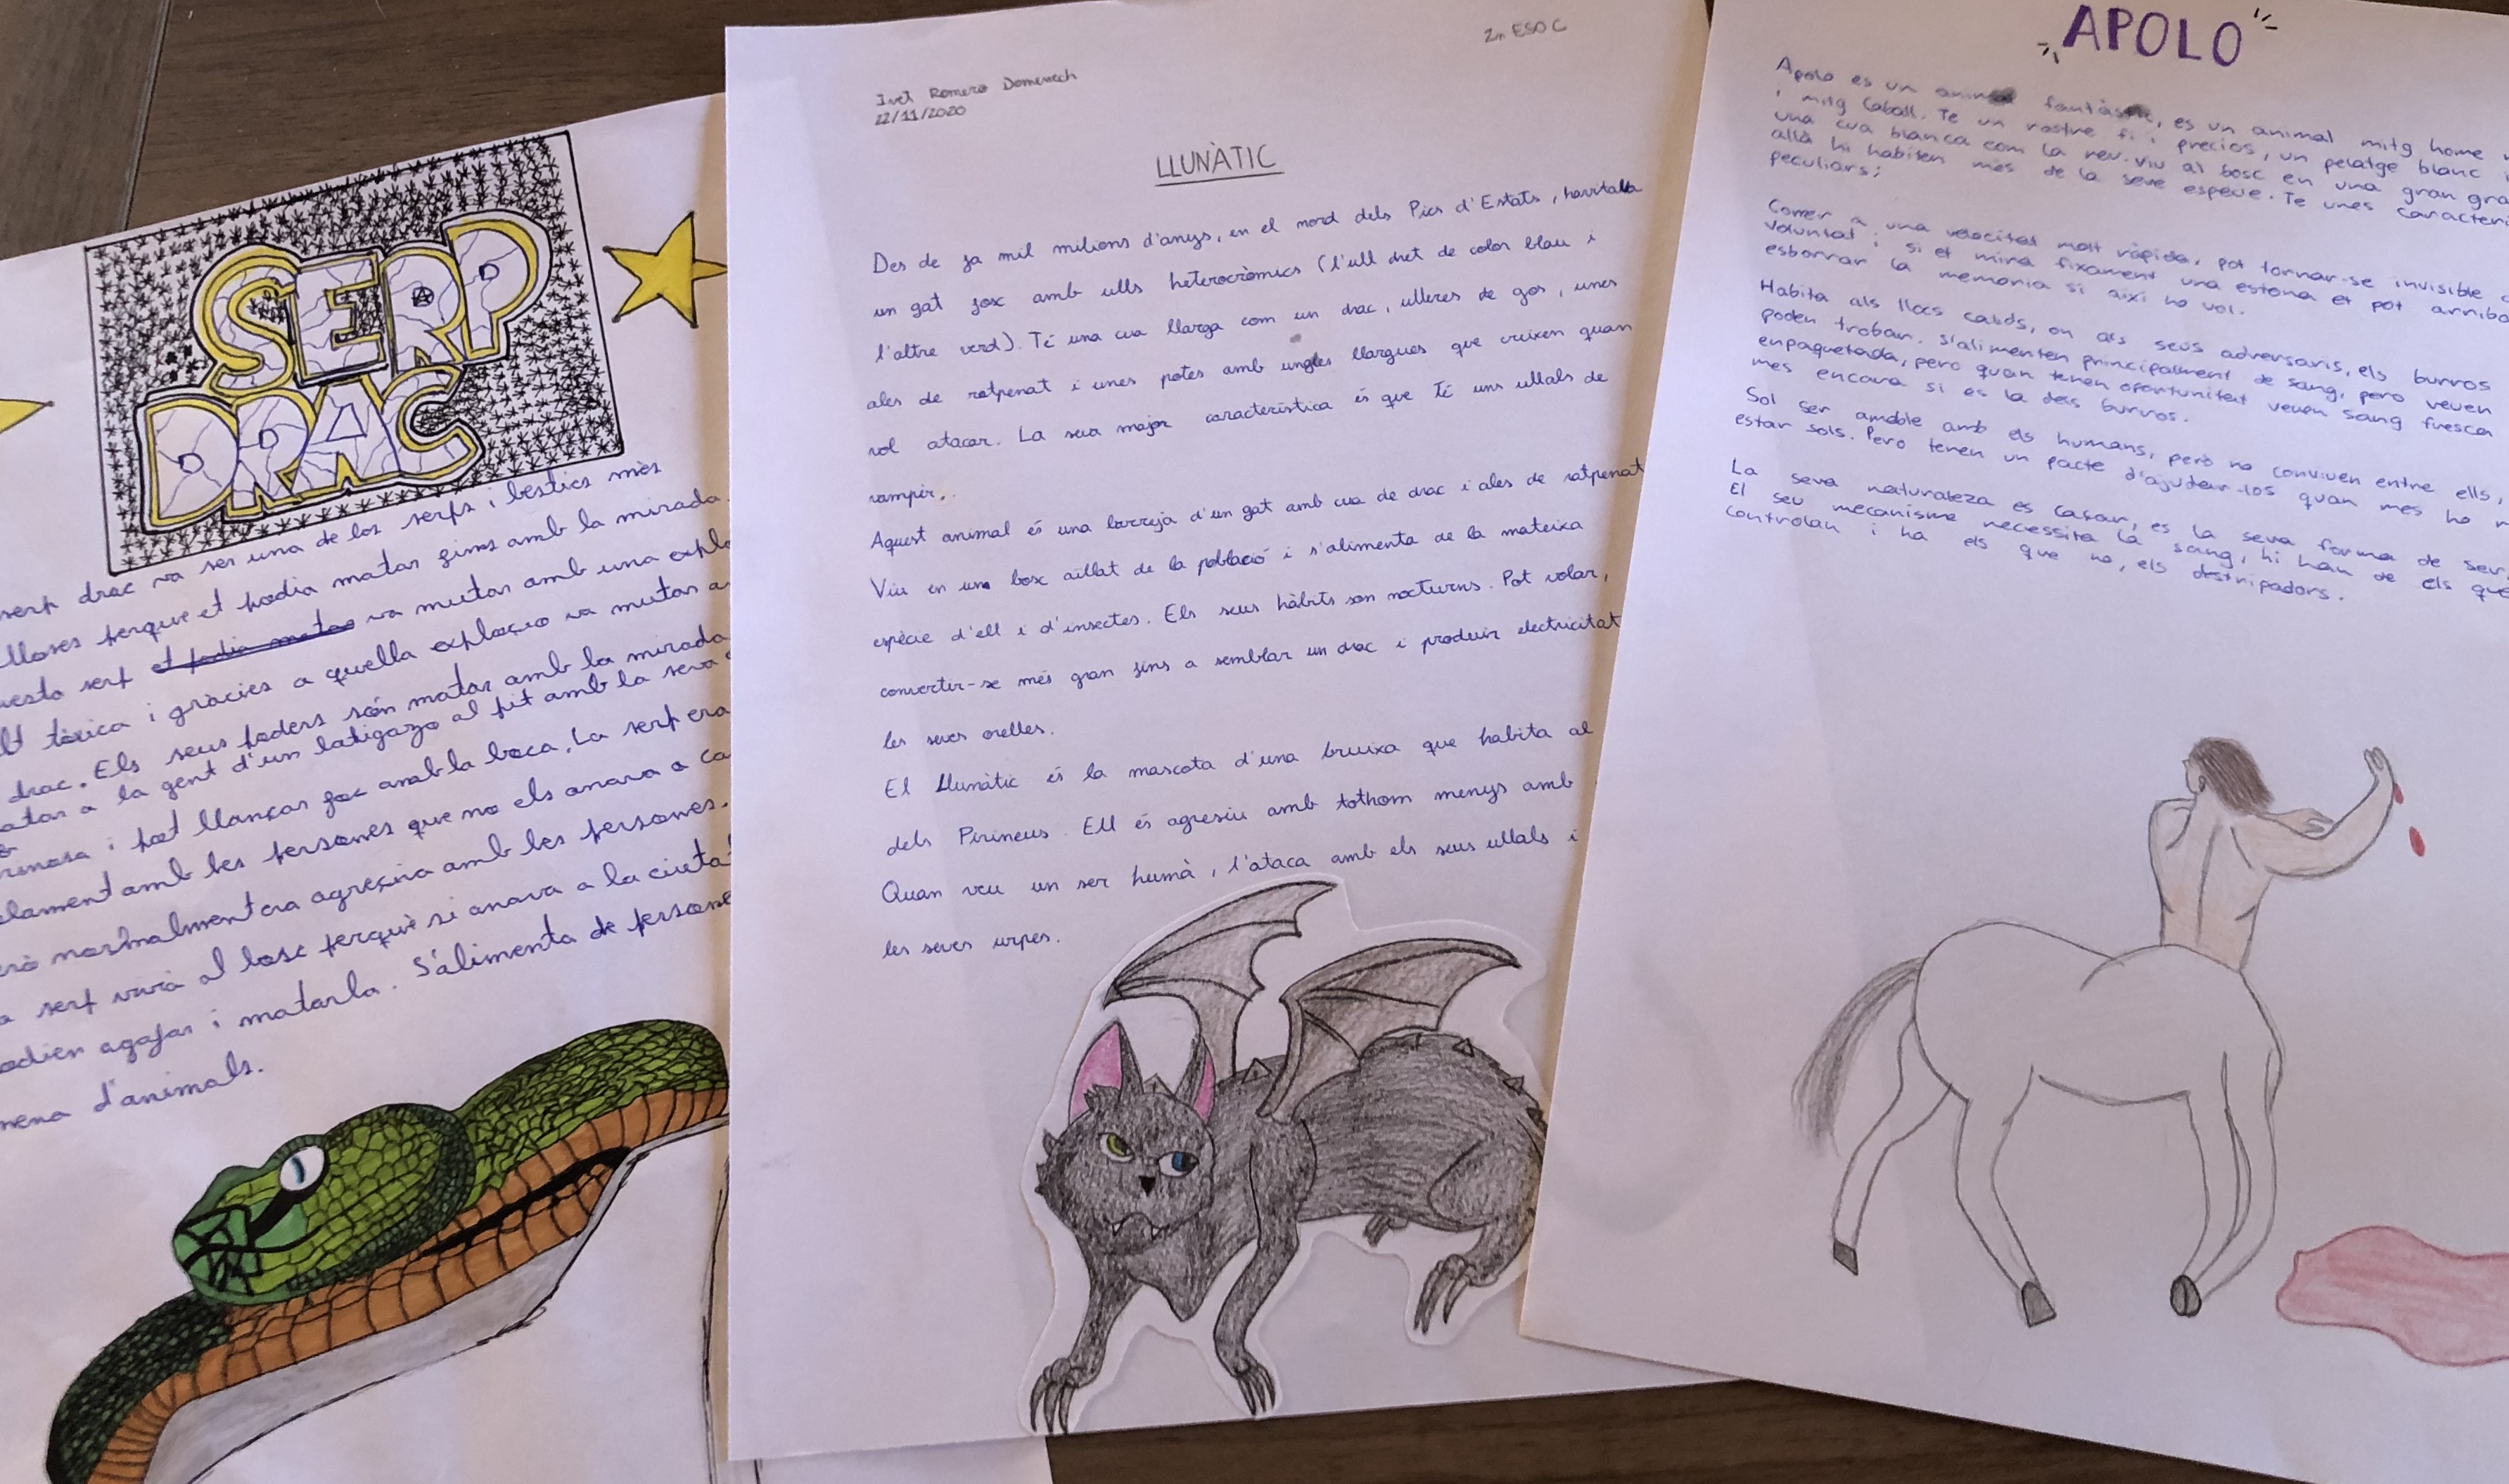 SERP
DRAC
serp drac va ser una de les serps i besties més
perque et podia matar fins amb la mirada.
serp et podia matar va mutar amb una
tòxica i gràcies a quella explocio va mutar a
drac. Els seus poders són matar amb la mirada
a la gent d'un latigazo al pit amb la seva
i pot llançar foc amb la boca. La serp era
amb les persones que no els anava a
normalment era agreciva amb les persones.
serp vivia al bosc perquè si anava a la ciutat
agafar i matarla. S'alimenta de
d'animals.
2n ESO C
Ivet Romero Domenech
22/11/2020
LLUNÀTIC
Des de fa mil milions d'anys, en el nord dels Pics d'Estats, havitava
un gat fosc amb ulls heterocròmics (l'ull dret de color blau i
l'altre verd). Té una cua llarga com un drac, ulleres de gos, unes
ales de ratpenat i unes potes amb ungles llargues que creixen quan
vol atacar. La seva major característica és que té uns ullals de
vampir.
Aquest animal és una barreja d'un gat amb cua de drac i ales de ratpenat
Viu en una bosc aïllat de la població i s'alimenta de la mateixa
espècie d'ell i d'insectes. Els seus hàbits son nocturns. Pot volar,
convertir-se més gran fins a semblar un drac i produir electricitat
les seves orelles.
El Llunàtic és la mascota d'una bruixa que habita al
dels Pirineus. Ell és agresiu amb tothom menys amb
Quan veu un ser humà, l'ataca amb els seus ullals i
les seves urpes.
APOLO
Apolo es un animal fantàstic, es un animal mitg home
i mitg Caball. Te un rostre fi i precios, un pelatge blanc
una cua blanca com la neu. Viu al bosc en una gran
allà hi habiten mes de la seve especie. Te unes
peculiars;
Correr a una velocitat molt ràpida, pot tornar-se invisible
voluntat i si et mira fixament una estona et pot
esborrar la memoria si així ho vol.
Habita als llocs calids, on als seus adversaris, els burros
poden trobar. S'alimenten principalment de sang, pero veuen
enpaquetada, pero quan tenen oportunitat veuen sang fresca
mes encara si es la dels burros.
Sol ser amable amb els humans, però no conviven entre ells,
estar sols. Pero tenen un pacte d'ajudar-los quan mes ho
La seva naturaleza es casar, es la seva forma de ser,
El seu mecanisme necessita la sang, hi han de els que
controlan i ha els que no, els destripadors.